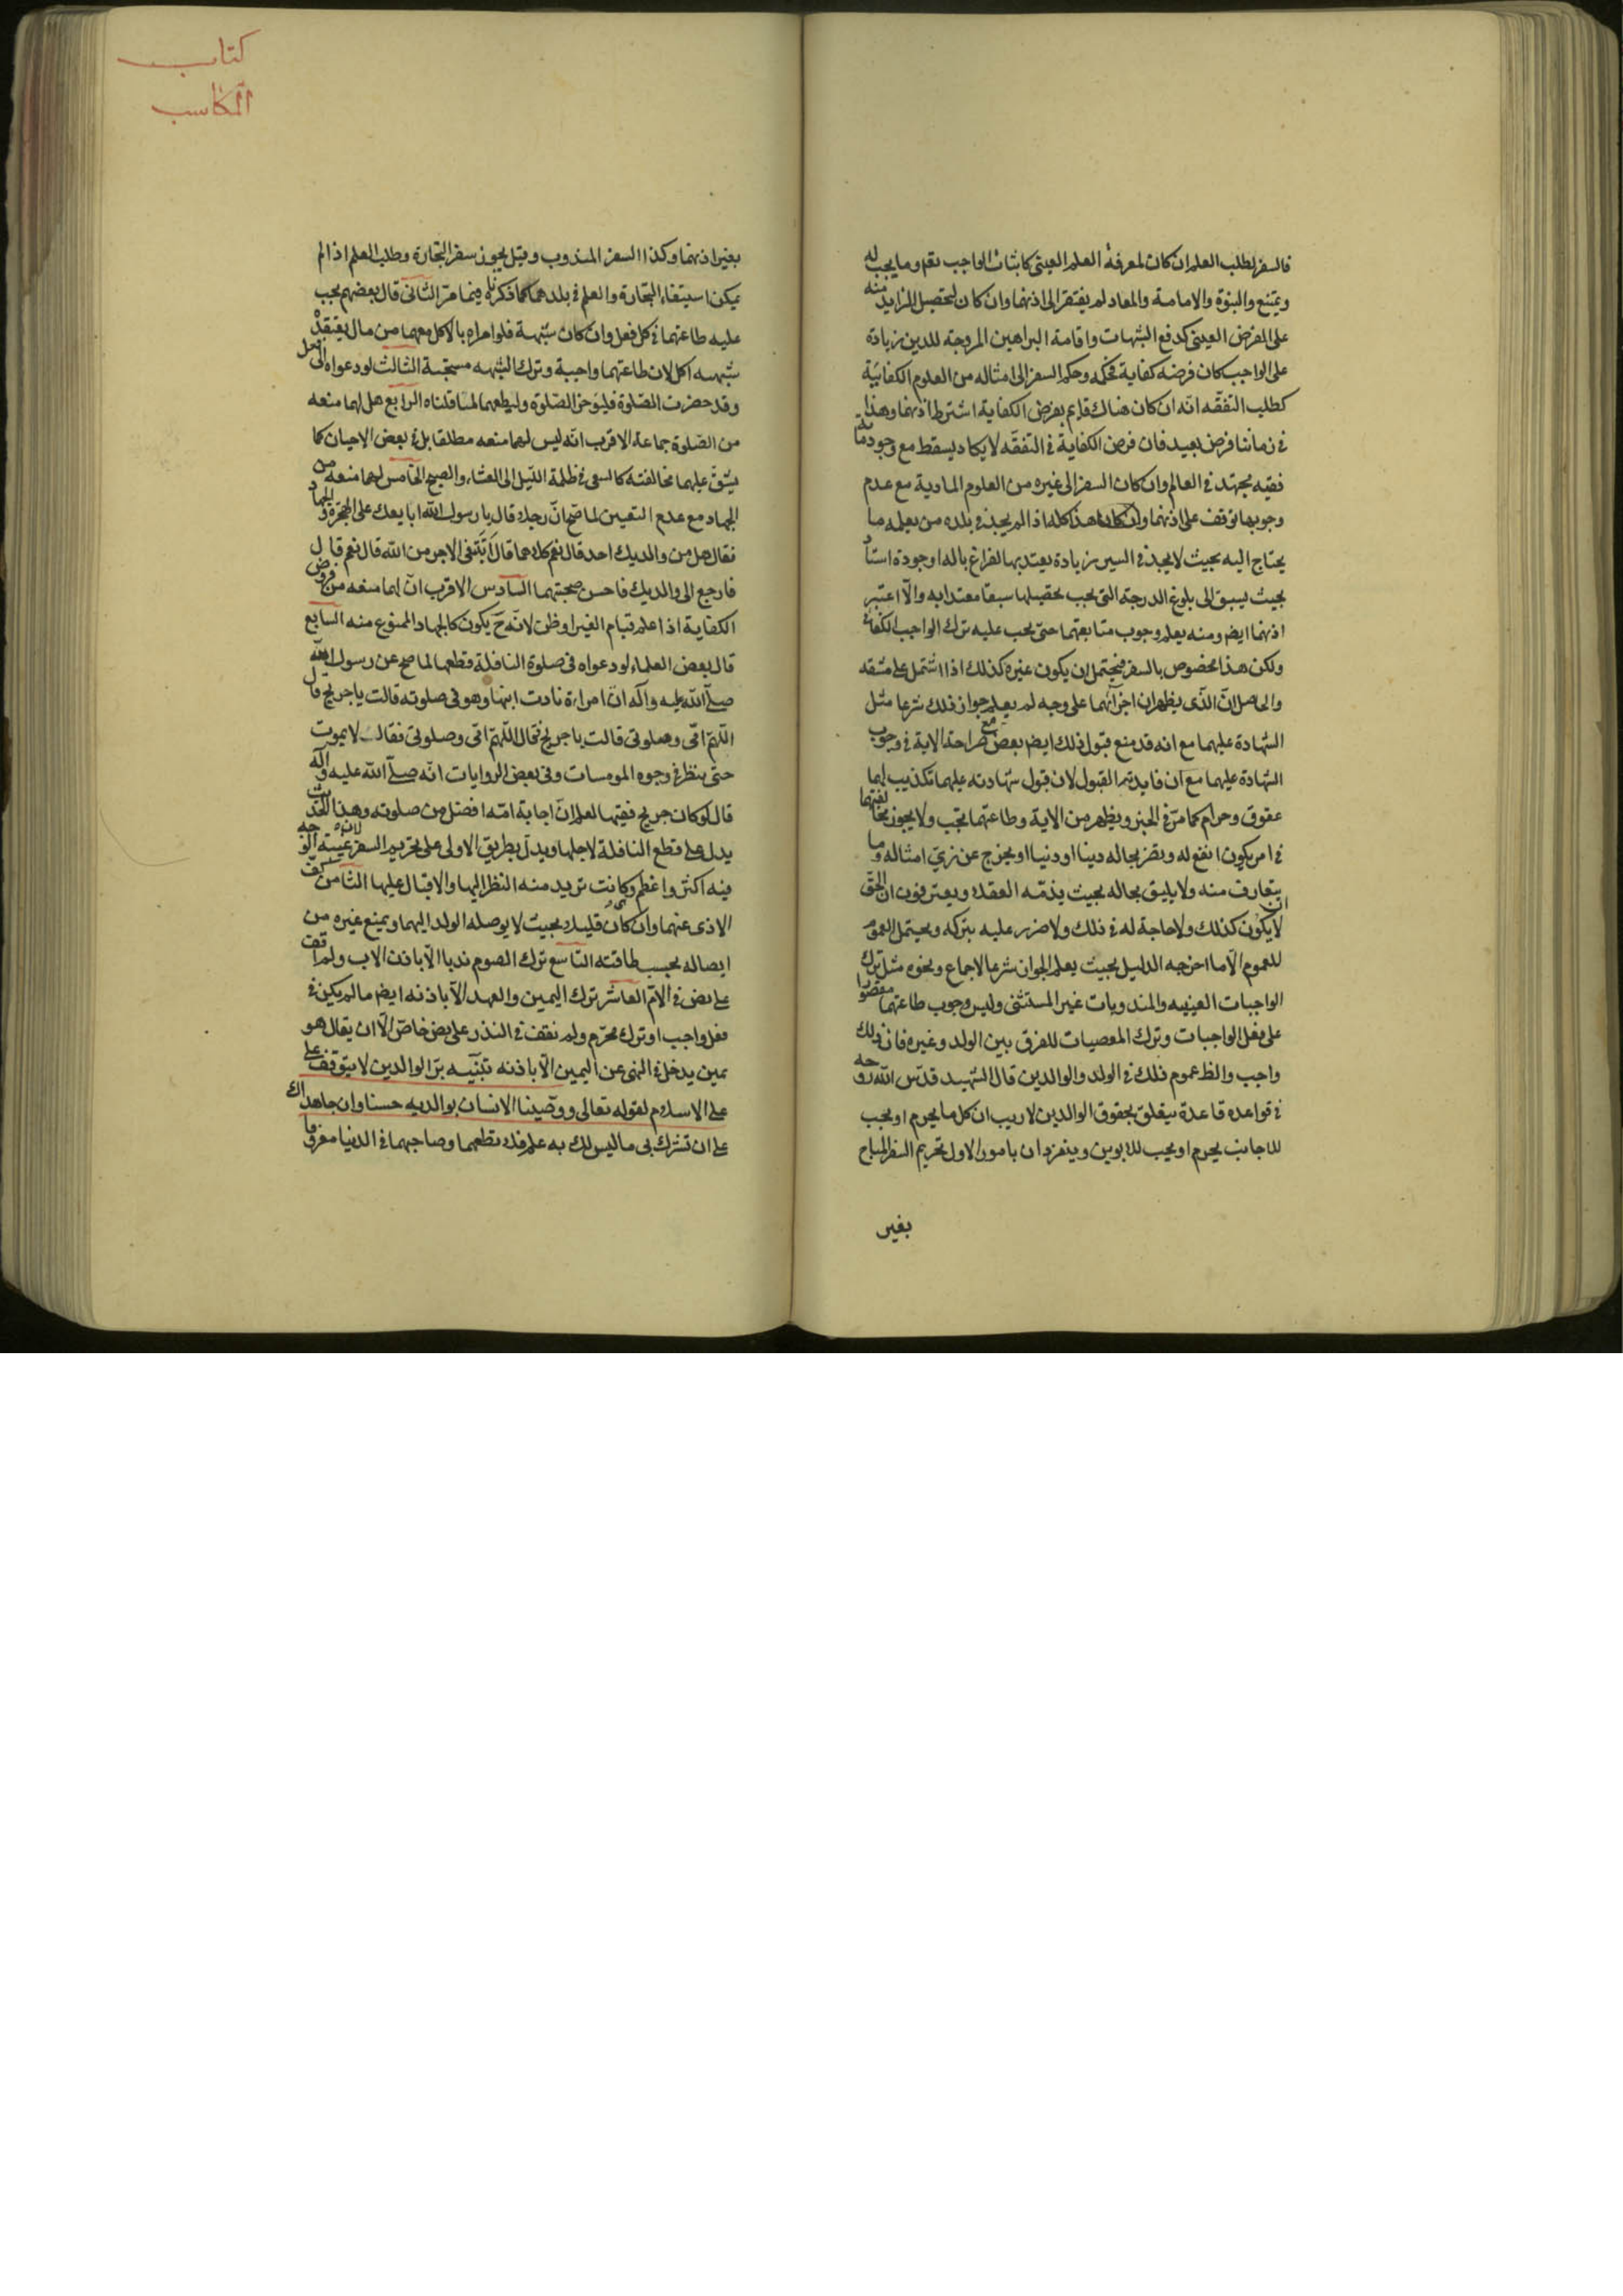 فالسفر لطلب العلم ان كان لمعرفة العلم العينى كاثبات الواجب تعم وما يجب له
ويمتنع والنبوة والامامة والمعاد لم يفتقر الى اذنهما وان كان لتحصيل الزايد منه
على الفرض العينى كدفع الشبهات واقامة البراهين المروجة للدين زيادة
على الواجب كان فرضه كفاية فحكمه وحكم السفر الى امثاله من العلوم الكفائية
كطلب التفقه انه ان كان هناك قايم بفرض الكفاية اشترط اذنهما وهذا
فى زماننا فرض بعيد فان فرض الكفاية فى التفقه لا يكاد يسقط مع وجود مائة
فقيه مجتهد فى العالم وان كان السفر الى غيره من العلوم المادية مع عدم
وجوبها توقف على اذنهما وان كان هذا كله اذا لم يجد فى بلده من يعلمه ما
يحتاج اليه بحيث لا يجد فى السفر زيادة يعتد بها لفراغ باله او جودة استاد
بحيث يسبق الى بلوغ الدرجة التى يجب تحصيلها سبقا معتدا به والا اعتبر
اذنهما ايض ومنه يعلم وجوب متابعتهما حتى يجب عليه ترك الواجب الكفائى
ولكن هذا مخصوص بالسفر فيحتمل ان يكون غيره كذلك اذا اشتمل على مشقه
والحاصل ان الذى يظهر ان اجزائهما على وجه لم يعلم جواز ذلك شرعا مثل
الشهادة عليهما مع انه قد منع قبول ذلك ايض بعض مع صراحة الاية فى وجوب
الشهادة عليهما مع ان فايدته القبول لان قبول شهادته عليهما تكذيب لهما
عقوق وحرام كما مر فى الخبر ويظهر من الاية وطاعتهما تجب ولا يجوز مخالفتهما
فى امر يكون انفع له ويضر بحاله دينا او دنيا او يخرج عن زى امثاله وما
يتعارف منه ولا يليق بحاله بحيث يذمه العقلا ويعترفون ان الحق ان
لا يكون كذلك ولا حاجة له فى ذلك ولا ضرر عليه بتركه ويحتمل العموم
للعموم الا ما اخرجه الدليل بحيث يعلم الجواز شرعا لاجماع ونحوه مثل ترك
الواجبات العينيه والمندوبات غير المستثنى وليس وجوب طاعتهما مقصورا
على فعل الواجبات وترك المعصيات للفرق بين الولد وغيره فان ذلك
واجب والظ عموم ذلك فى الولد والوالدين قال الشهيد قدس الله روحه
فى قواعده قاعدة يتعلق بحقوق الوالدين لا ريب ان كل ما يحرم او يجب
للاجانب يحرم او يجب للابوين وينفردان بامور الاول تحريم السفر المباح
بغير
كتاب
المكاسب
بغير اذنهما وكذا السفر المندوب وقيل يجوز سفر التجارة وطلب العلم اذا لم
يمكن استيفاء التجارة والعلم فى بلدهما كما ذكرناه فيما مر الثانى قال بعضهم يجب
عليه طاعتهما فى كل فعل وان كان شبهة فلو امراه بالاكل معهما من مال يعتقده
شبهه اكل لان طاعتهما واجبة وترك الشبهه مستحبة الثالث لو دعواه الى فعل
وقد حضرت الصلوة فليؤخر الصلوة وليطعهما لما قلناه الرابع هل لهما منعه
من الصلوة جماعة الاقرب انه ليس لهما منعه مطلقا بل فى بعض الاحيان كما
يشق عليهما مخالفته كالسعى فى ظلمة الليل الى العشاء والصبح الخامس لهما منعه من
الجهاد مع عدم التعيين لما صح ان رجلا قال يا رسول الله ابايعك على الهجرة والجهاد
فقال هل من والديك احد قال نعم كلاهما قال اتبتغى الاجر من الله قال نعم قال
فارجع الى والديك فاحسن صحبتهما السادس الاقرب ان لهما منعه من فروض
الكفاية اذا علم قيام الغير او ظن لانه ح يكون كالجهاد الممنوع منه السابع
قال بعض العلماء لو دعواه فى صلوة النافلة قطعها لما صح عن رسول الله
صلى الله عليه وآله ان امراة نادت ابنها وهو فى صلوته قالت يا جريح قال
اللهم امى وصلوتى قالت يا جريح فقال اللهم امى وصلوتى فقال لا يموت
حتى ينظر فى وجوه المومسات وفى بعض الروايات انه صلى الله عليه وآله
قال لو كان جريح فقيها لعلم ان اجابة امه افضل من صلوته وهذا الحديث
يدل على قطع النافلة لاجلها ويدل بطريق الاولى على تحريم السفر لان غيبة الوجه
فيه اكثر واعظم وكانت تريد منه النظر اليها والاقبال عليها الثامن كف
الاذى عنهما وان كان قليلا بحيث لا يوصله الولد اليهما ويمنع غيره من
ايصاله بحسب طاقته التاسع ترك الصوم ندبا الا باذن الاب ولم اقف
على نص فى الام العاشر ترك اليمين والعهد الا باذنه ايض ما لم يكن فى
فعل واجب او ترك محرم ولم نقف فى النذر على نص خاص الا ان يقال هو
يمين يدخل فى النهى عن اليمين الا باذنه تنبيه بر الوالدين لا يتوقف على
على الاسلام لقوله تعالى ووصينا الانسان بوالديه حسنا وان جاهداك
على ان تشرك بى ما ليس لك به علم فلا تطعهما وصاحبهما فى الدنيا معروفا